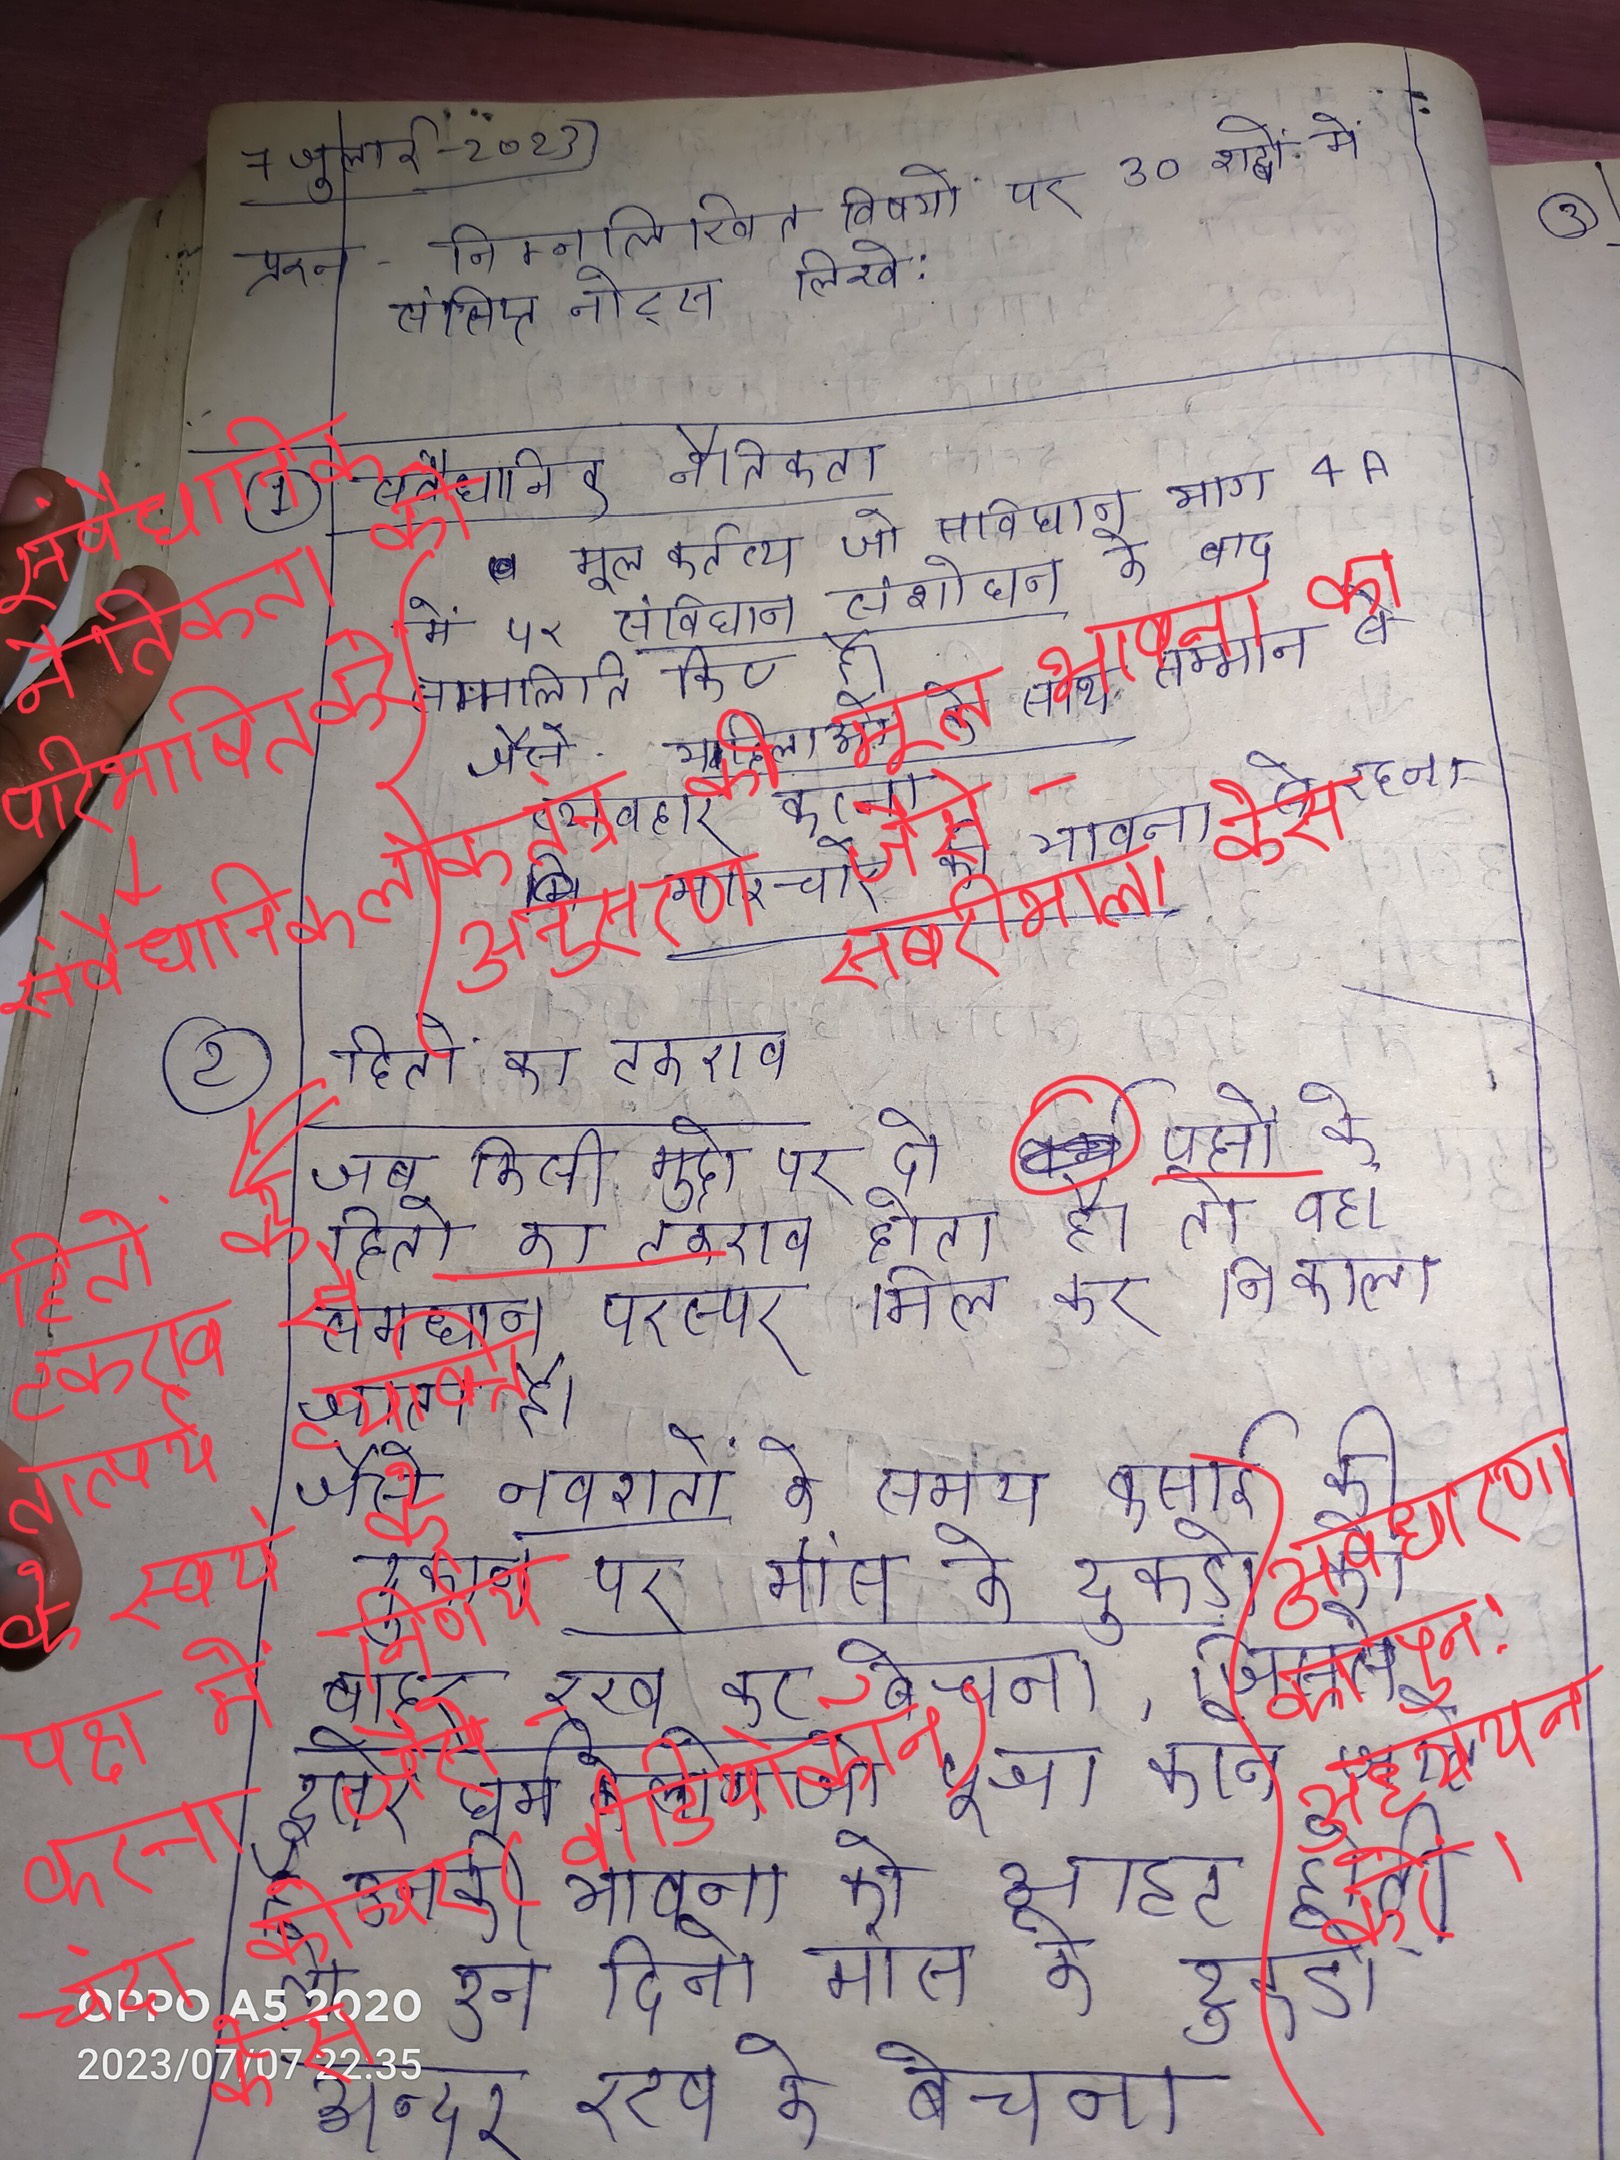 7 जुलाई - 2023
प्रश्न - निम्नलिखित विषयों पर 30 शब्दों में
संक्षिप्त नोट्स लिखे:
③
① नैतिकता
मूल कर्तव्य जो भाग 4A
में पर संविधान संशोधन के बाद
किए है।
जैसे सम्मान से
व्यवहार करना
की भावना से रहना
संवैधानिक
नैतिकता को
परिभाषित करे
संवैधानिक लोकतंत्र की मूल भावना का
अनुसरण जैसे -
सबरीमाला केस
② हितों का टकराव
जब किसी मुद्दे पर दो पक्षों के
हितो का टकराव होता है। तो वहा
समाधान परस्पर मिल कर निकाला
है।
जैसे नवरातो के समय कसाई की
दुकान पर मांस के टुकड़ो को
बाहर रख कर बेचना,
दूसरे धर्म पूजा
उनकी भावना को
उन दिनो मांस के
अन्दर के बेचना
हितों के
टकराव से
तात्पर्य व्यक्ति
के स्वयं के
पक्ष में निर्णय
करना जैसे वीडियोकान
चंदा कोचर
केस
अवधारणा
का पुन:
अध्ययन
करें।
OPPO A5 2020
2023/07/07 22:35